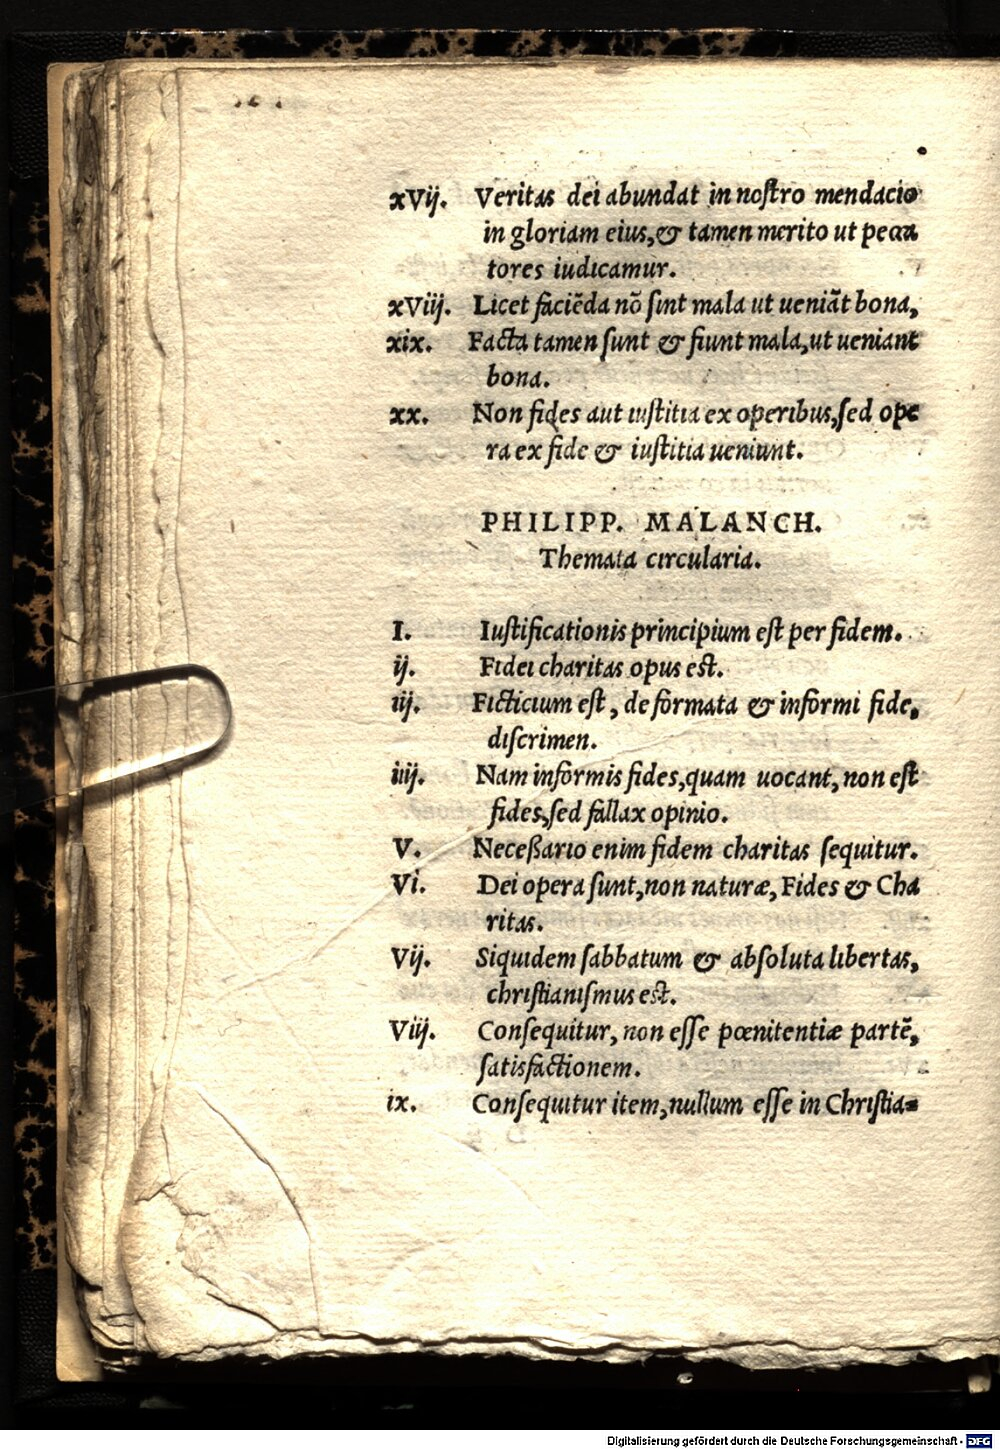 xVij. Veritas dei abundat in nostro mendacio
in gloriam eius, & tamen merito ut pecca
tores iudicamur.
xViij. Licet faciẽda nõ sint mala ut ueniãt bona,
xix. Facta tamen sunt & fiunt mala, ut ueniant
bona.
xx. Non fides aut iustitia ex operibus, sed ope
ra ex fide & iustitia ueniunt.
PHILIPP. MALANCH.
Themata circularia.
I. Iustificationis principium est per fidem.
ij. Fidei charitas opus est.
iij. Ficticium est, de formata & informi fide,
discrimen.
iiij. Nam informis fides, quam uocant, non est
fides, sed fallax opinio.
V. Neceßario enim fidem charitas sequitur.
Vi. Dei opera sunt, non naturæ, Fides & Cha
ritas.
Vij. Siquidem sabbatum & absoluta libertas,
christianismus est.
Viij. Consequitur, non esse pœnitentiæ partẽ,
satisfactionem.
ix. Consequitur item, nullum esse in Christia=
Digitalisierung gefördert durch die Deutsche Forschungsgemeinschaft - DFG